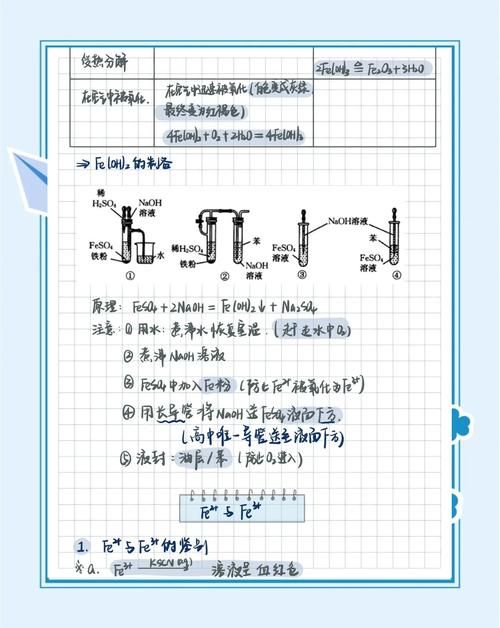 受热分解
2Fe(OH)₃ ≙ Fe₂O₃+3H₂O
在空气中被氧化
在空气中迅速被氧化(白色变成灰绿,
最终变为红褐色)
4Fe(OH)₂+O₂+2H₂O=4Fe(OH)₃
⇒ Fe(OH)₂的制备
稀 H₂SO₄ NaOH 溶液 FeSO₄ 铁粉 水 ①
稀H₂SO₄ 铁粉 苯 NaOH 溶液 ②
NaOH溶液 FeSO₄ 溶液 ③
苯 FeSO₄ 溶液 ④
原理: FeSO₄+2NaOH=Fe(OH)₂↓+Na₂SO₄
注意: ① 用水: 煮沸水恢复室温. (赶走水中O₂)
② 煮沸NaOH溶液
③ FeSO₄中加入Fe粉 (防止Fe²⁺被氧化为Fe³⁺)
④ 用长导管将NaOH送FeSO₄液面下方.
(高中唯一导管送至液面下方)
⑤ 液封: 油层/苯 (防止O₂进入)
Fe²⁺与Fe³⁺
1. Fe²⁺与Fe³⁺的鉴别
※a. Fe³⁺ KSCN(aq) 溶液呈血红色